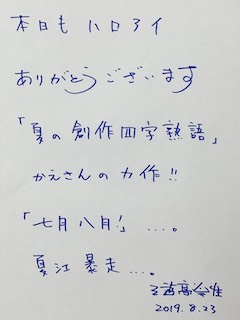 本日も ハロアイ
ありがとうございます
「夏の創作四字熟語」
かえさんの力作!!
「七月八月!」…。
夏江暴走…。
2019.8.23